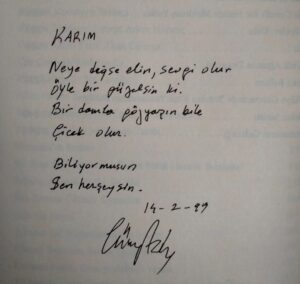 KARIM
Neye değse elin, sevgi olur
Öyle bir güzelsin ki.
Bir damla gözyaşın bile
Çiçek olur.
Biliyormusun
Sen herşeysin.
14-2-99